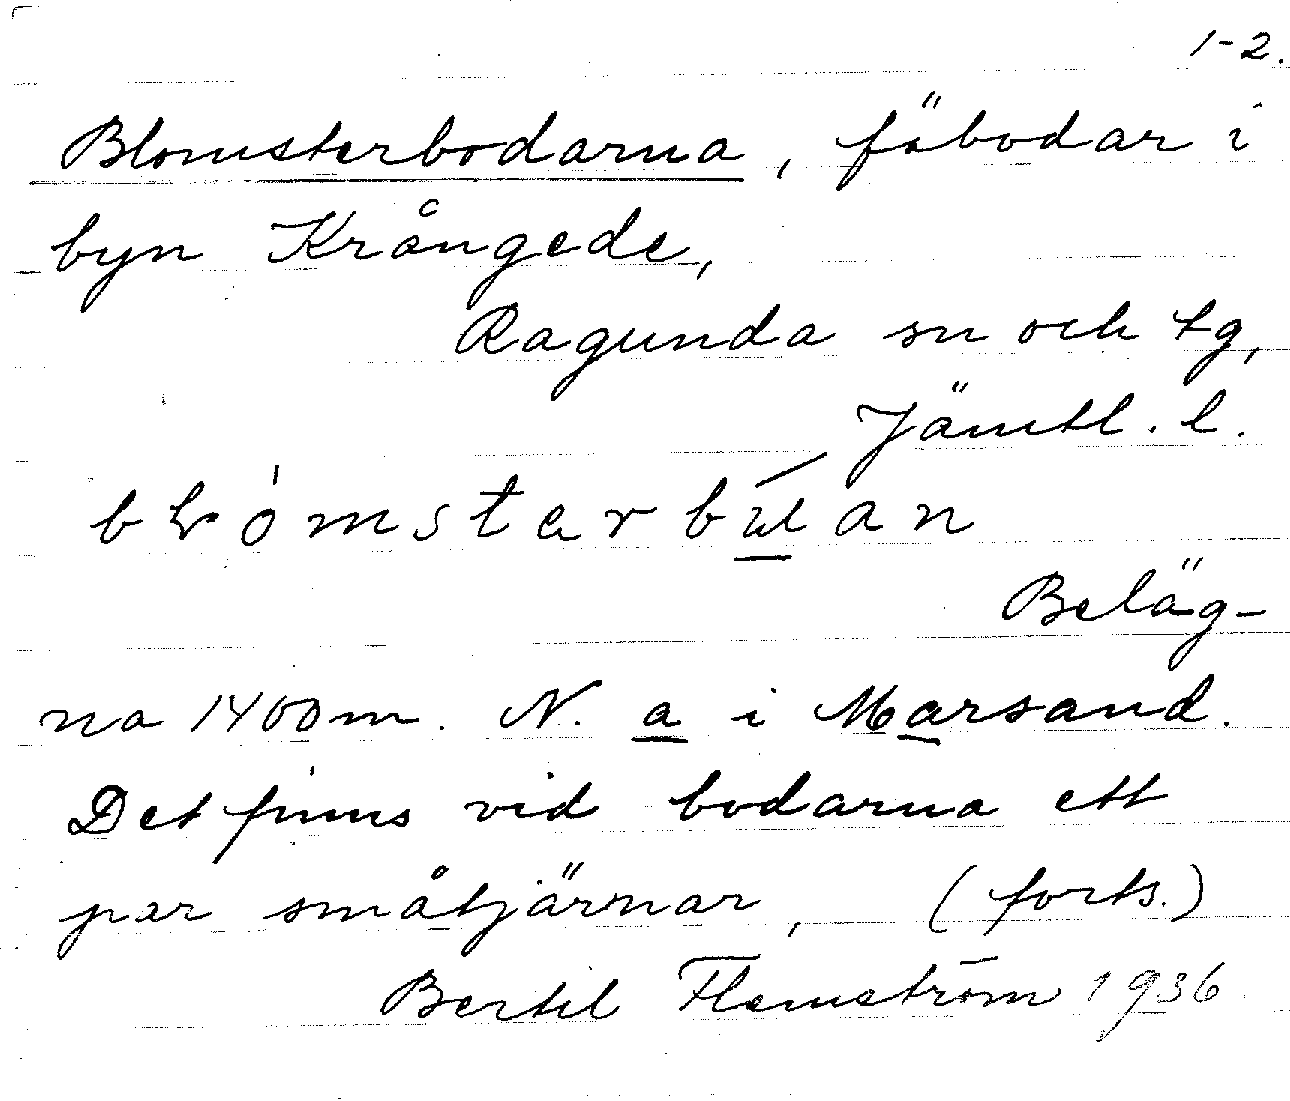 1-2.
Blomsterbodarna, fäbodar i
byn Krångede,
Ragunda sn och tg,
Jämtl. l.
Beläg-
na 1400 m. N. a i Marsand.
Det finns vid bodarna ett
par småtjärnar, (forts.)
Bertil Flemström 1936